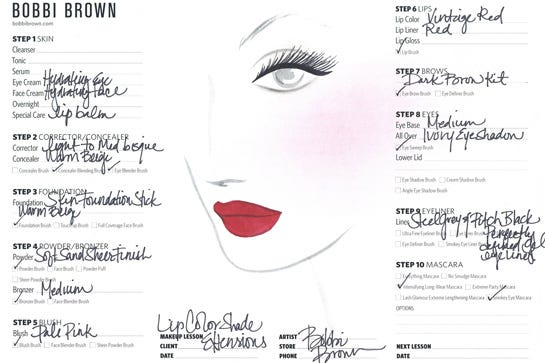 BOBBI BROWN
bobbibrown.com
STEP 1 SKIN
Cleanser
Tonic
Serum
Eye Cream Hydrating Eye
Face Cream Hydrating Face
Overnight
Special Care lip balm
STEP 2 CORRECTOR/CONCEALER
Corrector Light to Med bisque
Concealer Warm Beige
Concealer Brush Concealer Blending Brush Eye Blender Brush
STEP 3 FOUNDATION
Foundation Skin Foundation Stick
Warm Beige
Foundation Brush Touch Up Brush Full Coverage Face Brush
STEP 4 POWDER/BRONZER
Powder Soft Sand Sheer Finish
Powder Brush Face Brush Powder Puff
Sheer Powder Brush
Bronzer Medium
Bronzer Brush Face Blender Brush
STEP 5 BLUSH
Blush Pale Pink
Blush Brush Face Blender Brush Sheer Powder Brush
Lip Color Shade
Extensions
MAKEUP LESSON
CLIENT
DATE
ARTIST Bobbi
STORE Brown
PHONE
STEP 6 LIPS
Lip Color Vintage Red
Lip Liner Red
Lip Gloss
Lip Brush
STEP 7 BROWS
Dark Brow Kit
Eye Brow Brush Eye Definer Brush
STEP 8 EYES
Eye Base Medium
All Over Ivory Eyeshadow
Eye Sweep Brush
Lower Lid
Eye Shadow Brush Cream Shadow Brush
Angle Eye Shadow Brush
STEP 9 EYELINER
Liner Steel Grey or Pitch Black
Perfectly
Defined Gel
eyeliner
Ultra Fine Eyeliner Brush
Eye Definer Brush Smokey Eye Liner Brush
STEP 10 MASCARA
Everything Mascara No Smudge Mascara
Intensifying Long-Wear Mascara Extreme Party Mascara
Lash Glamour Extreme Lengthening Mascara Smokey Eye Mascara
OPTIONS
NEXT LESSON
DATE